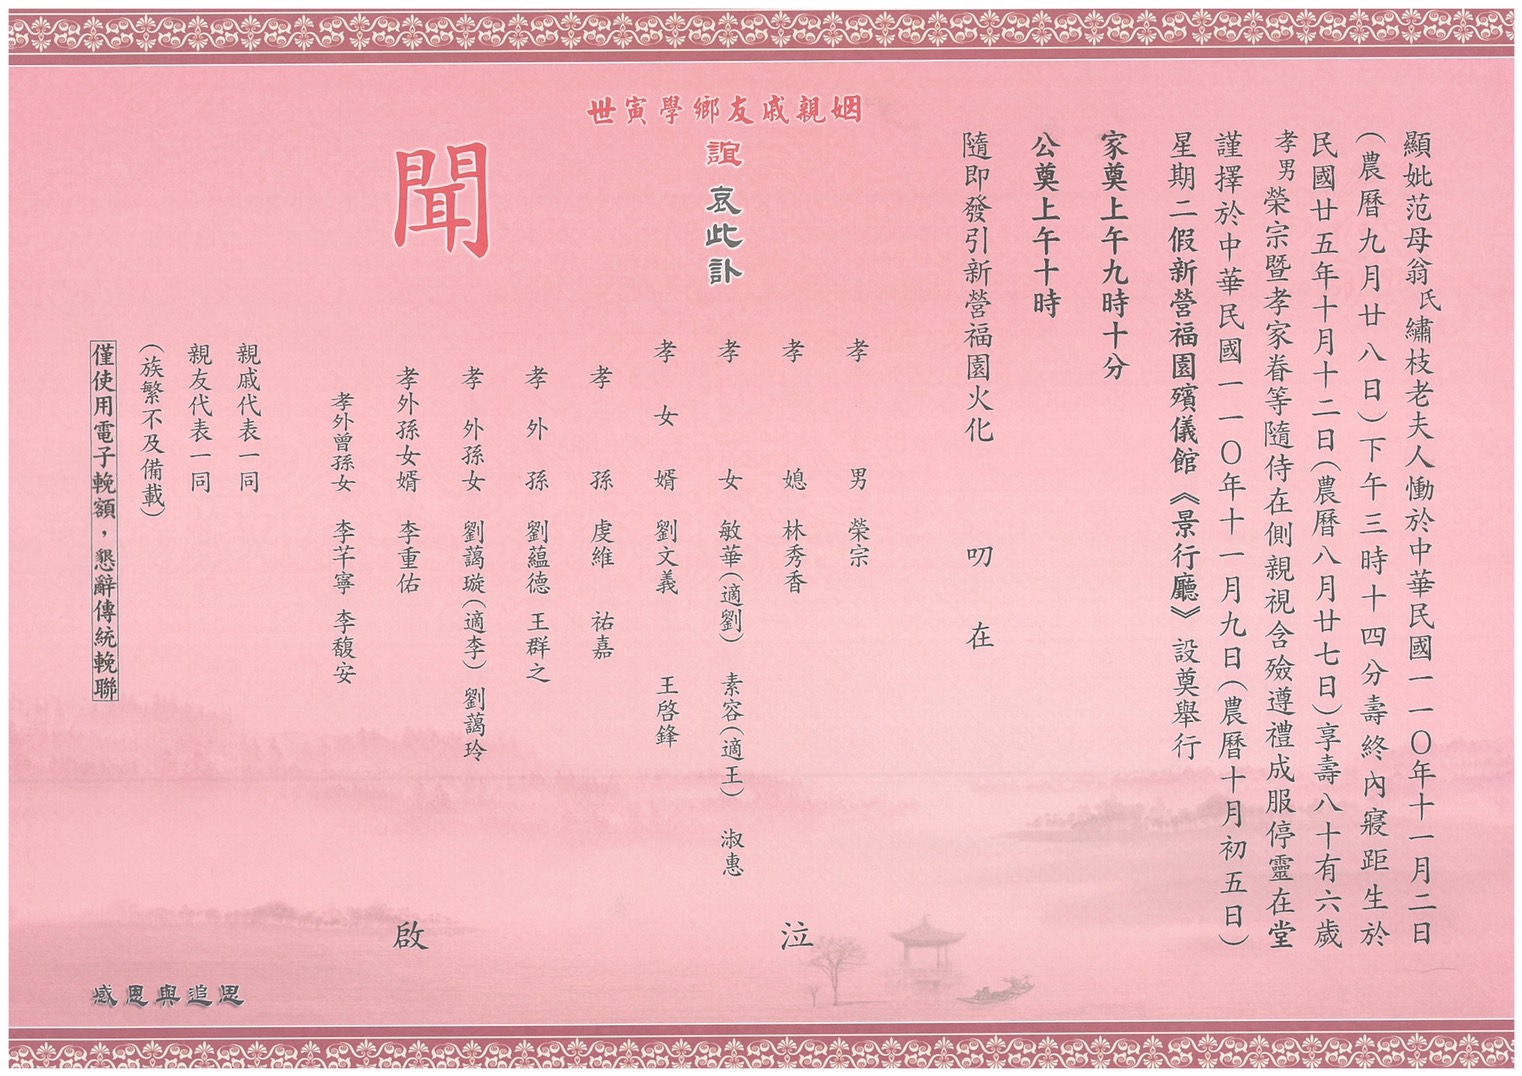 顯妣范母翁氏繡枝老夫人慟於中華民國一一〇年十一月二日
(農曆九月廿八日)下午三時十四分壽終內寢距生於
民國廿五年十月十二日(農曆八月廿七日)享壽八十有六歲
孝男榮宗暨孝家眷等隨侍在側親視含殮遵禮成服停靈在堂
謹擇於中華民國一一〇年十一月九日(農曆十月初五日)
星期二假新營福園殯儀館《景行廳》設奠舉行
家奠上午九時十分
公奠上午十時
隨即發引新營福園火化 叨在
姻親戚友鄉學寅世
誼 哀此訃
聞
孝男 榮宗
孝媳 林秀香
孝女 敏華(適劉) 素容(適王) 淑惠
孝女婿 劉文義 王啓鋒
孝孫 虔維 祐嘉
孝外孫 劉蘊德 王群之
孝外孫女 劉藹璇(適李) 劉藹玲
孝外孫女婿 李重佑
孝外曾孫女 李芊寧 李馥安
泣
啟
親戚代表一同
親友代表一同
(族繁不及備載)
僅使用電子輓額，懇辭傳統輓聯
感恩與追思